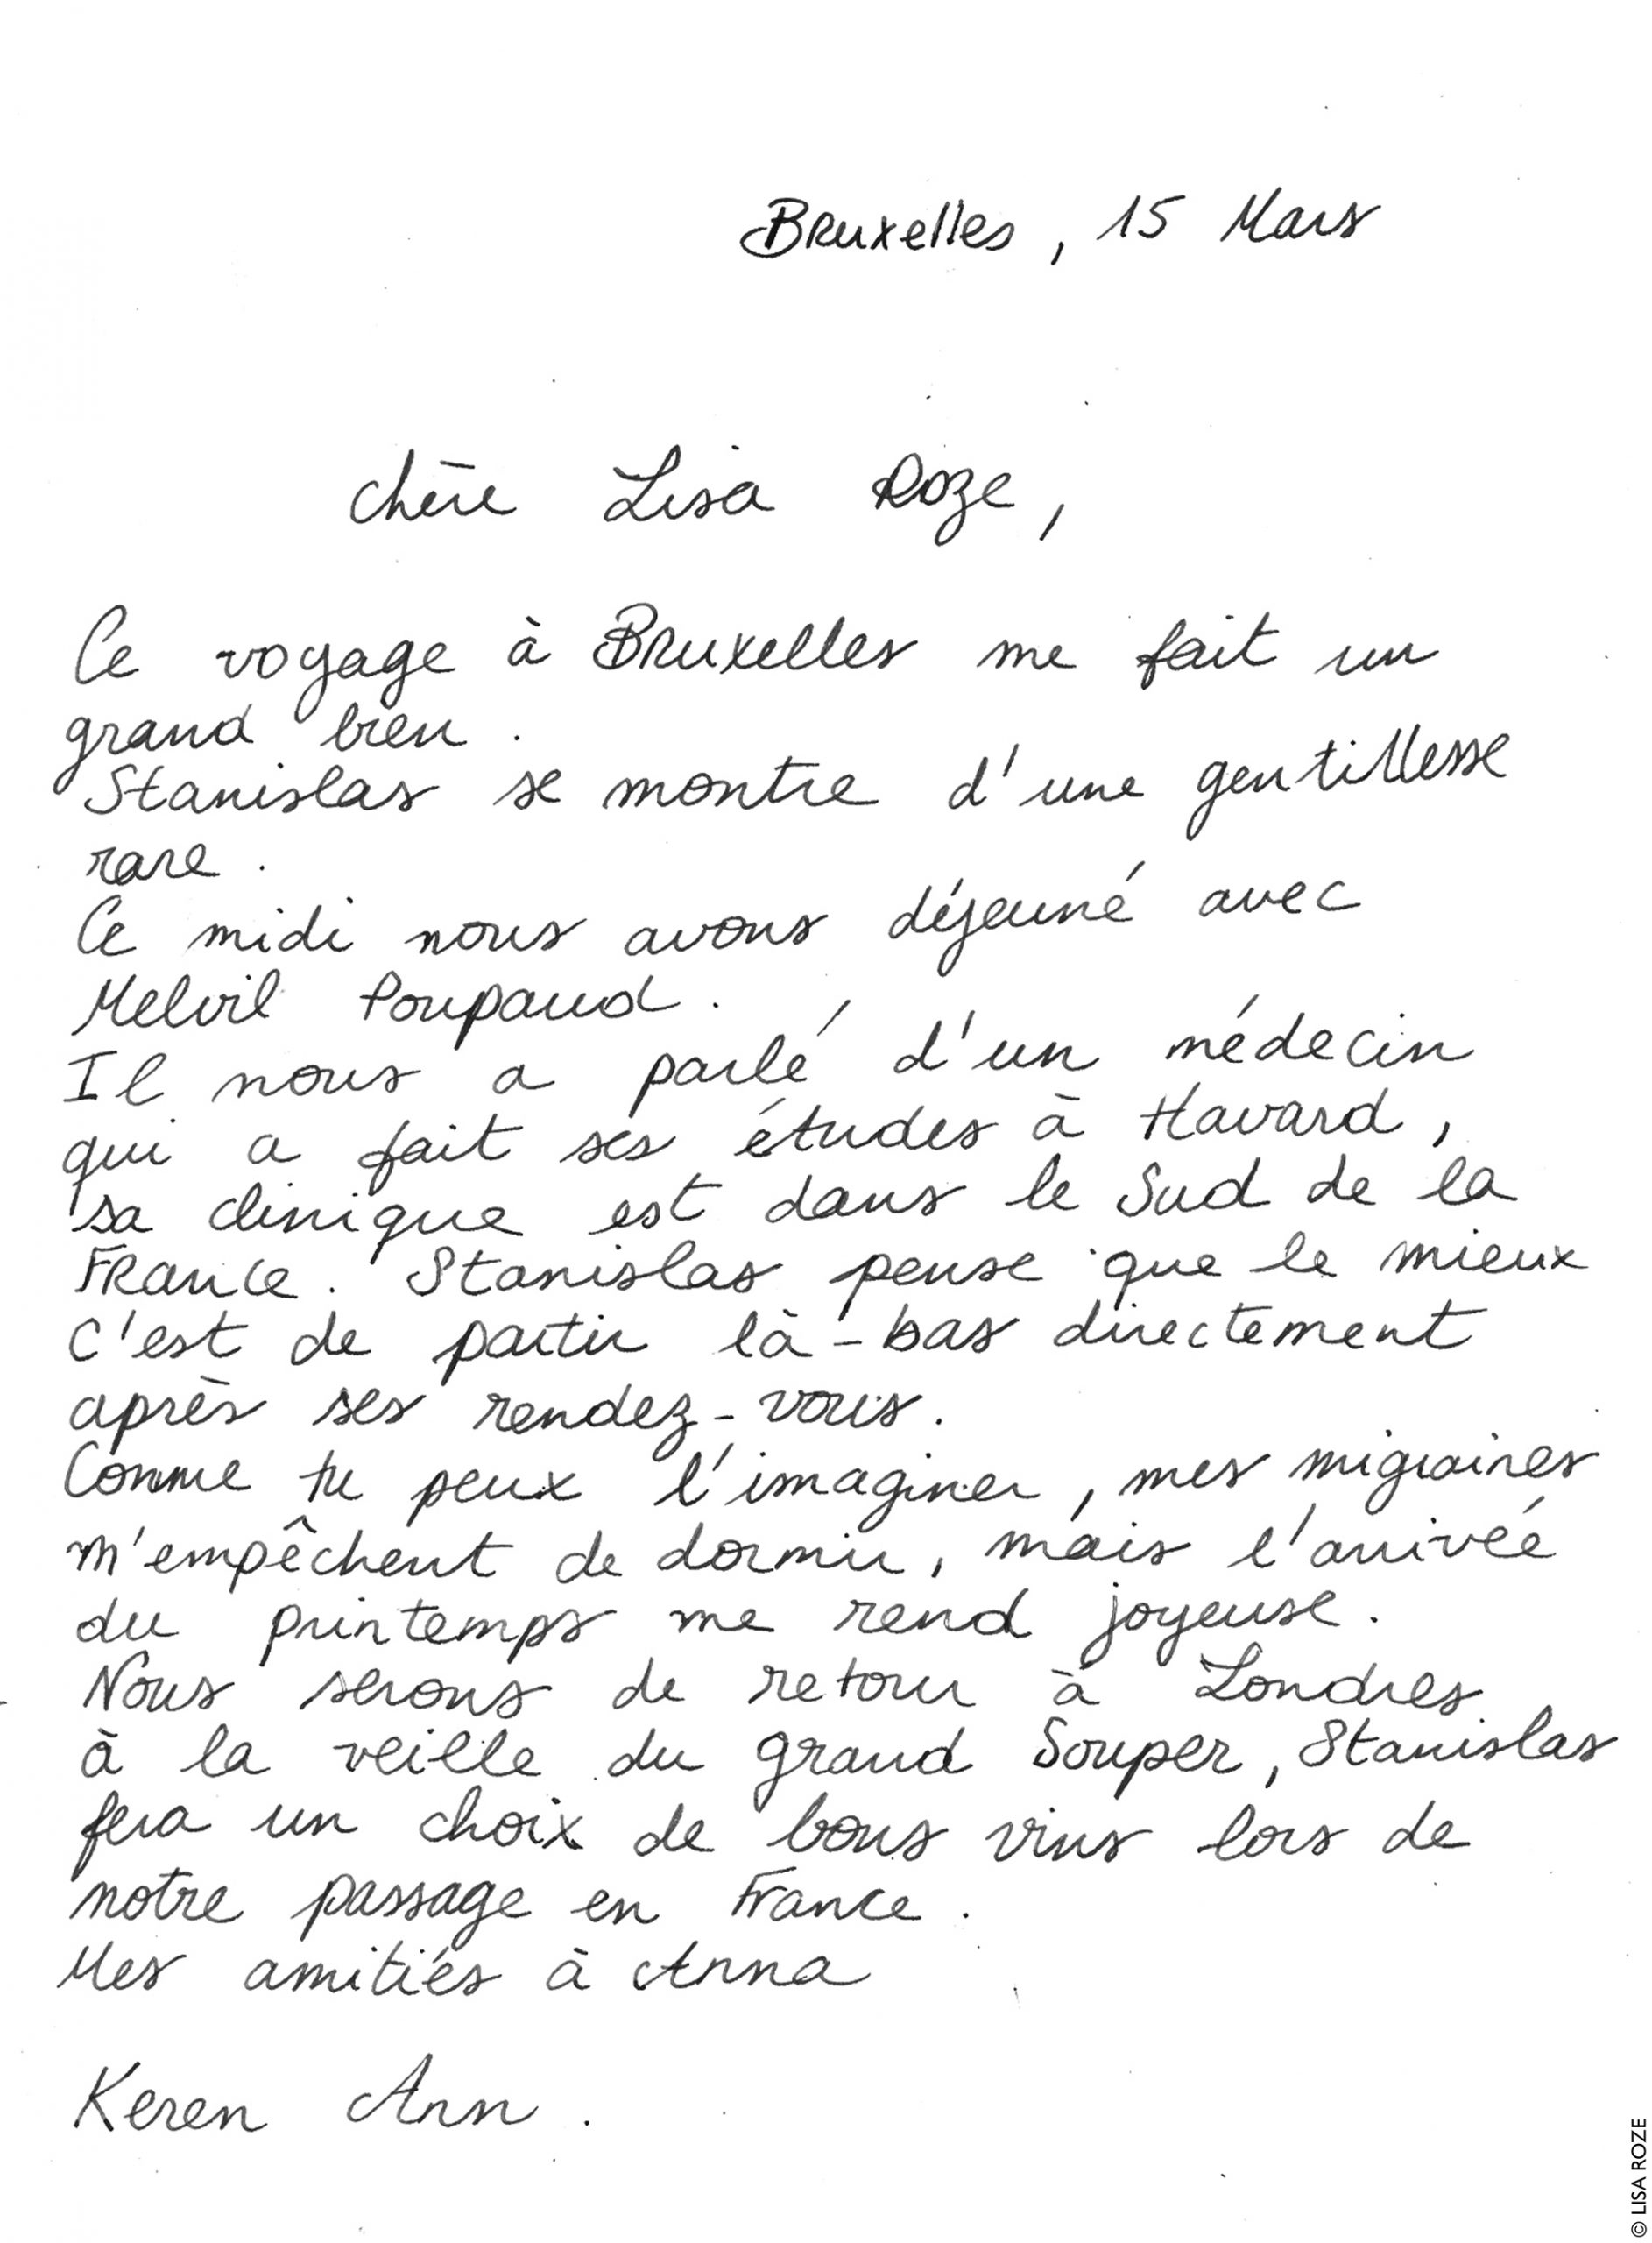 Bruxelles, 15 Mars
chère Lisa Roze,
Ce voyage à Bruxelles me fait un
grand bien.
Stanislas se montre d'une gentillesse
rare.
Ce midi nous avons déjeuné avec
Melvil Poupaud.
Il nous a parlé d'un médecin
qui a fait ses études à Havard,
sa clinique est dans le Sud de la
France. Stanislas pense que le mieux
c'est de partir là-bas directement
après ses rendez-vous.
Comme tu peux l'imaginer, mes migraines
m'empêchent de dormir, mais l'arrivée
du printemps me rend joyeuse.
Nous serons de retour à Londres
à la veille du grand Souper, Stanislas
fera un choix de bons vins lors de
notre passage en France.
Mes amitiés à Anna
Keren Ann.
© LISA ROZE